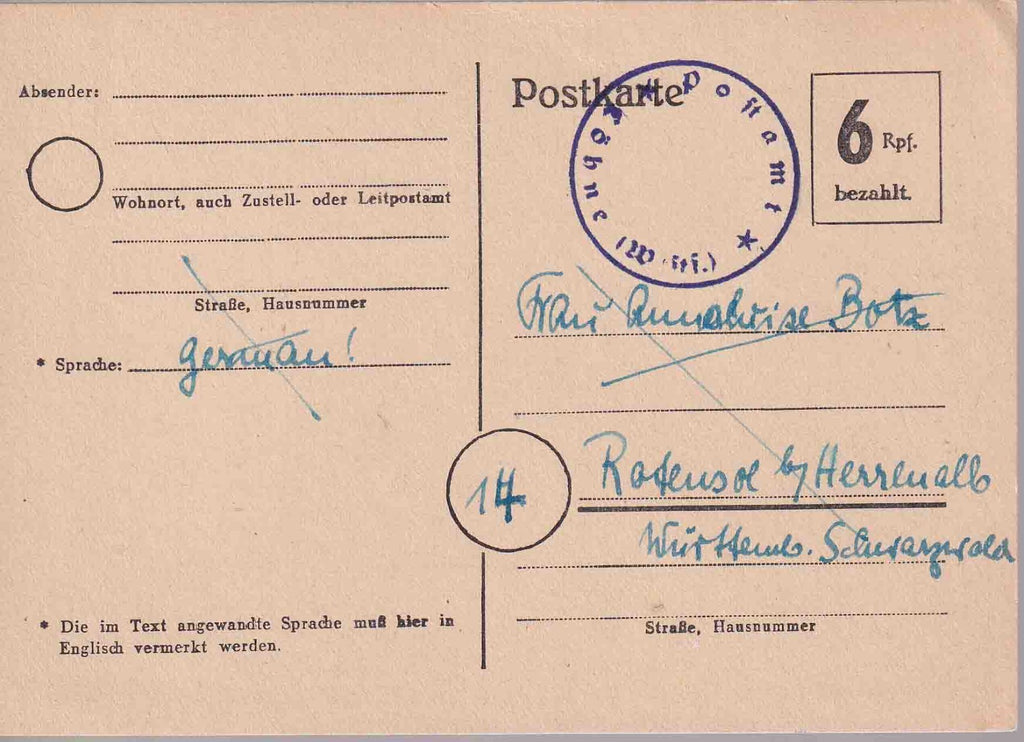 Absender:
Wohnort, auch Zustell- oder Leitpostamt
Straße, Hausnummer
* Sprache: german!
* Die im Text angewandte Sprache muß hier in
Englisch vermerkt werden.
Postkarte
Postamt
(Wstf.)
6 Rpf.
bezahlt.
Frau Anneluise Botz
14
Rotensol b/Herrenalb
Württemb. Schwarzwald
Straße, Hausnummer